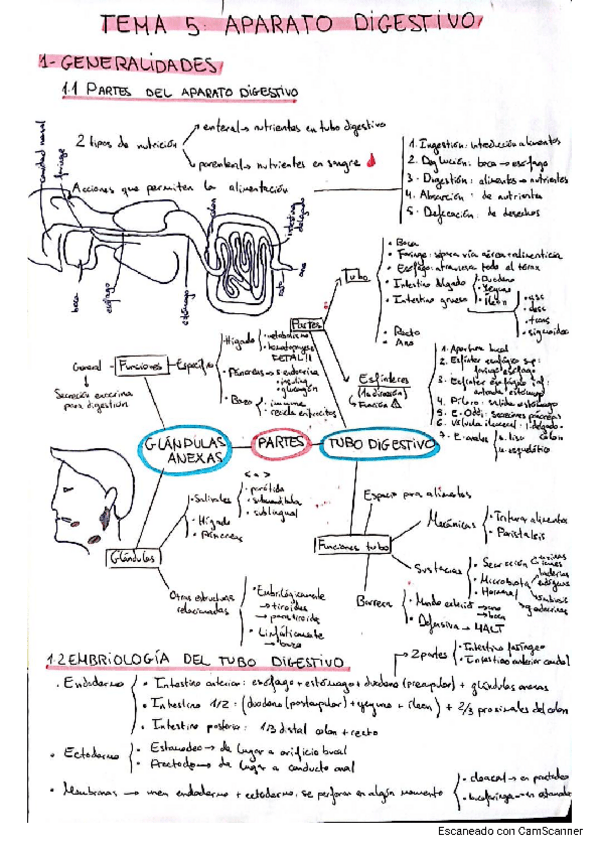 TEMA 5: APARATO DIGESTIVO
1-GENERALIDADES
1.1 PARTES DEL APARATO DIGESTIVO
2 tipos de nutrición
enteral → nutrientes en tubo digestivo
parenteral → nutrientes en sangre
Acciones que permiten la alimentación
1. Ingestión: introducción alimentos
2. Deglución: boca → esófago
3. Digestión: alimentos → nutrientes
4. Absorción: de nutrientes
5. Defecación: de desechos
cavidad nasal
faringe
boca
esófago
estómago
colon
intestino delgado
recto
ano
Partes
Tubo
• Boca
• Faringe: separa vía aérea + alimenticia
• Esófago: atraviesa todo el tórax
• Intestino delgado
• Duodeno
• Yeyuno
• Íleon
• Intestino grueso
• asc
• desc
• trans
• sigmoides
• Recto
• Ano
Esfínteres
(1a dirección)
Función
1. Apertura bucal
2. Esfínter esofágico sup:
faringe/esófago
3. Esfínter esofágico inf:
entrada estómago
4. Píloro: salida estómago
5. E. Oddi: secreciones páncreas
6. Válvula ileocecal: i. delgado -
colon
7. E. anales
a. liso
b. esquelético
General
Funciones
Específica
Secreción exocrina
para digestión
Hígado
• metabolismo
• hematopoyesis
FETAL!!
• Páncreas
• s. endocrina
• insulina
• glucagón
• Bazo
• inmune
• recicla eritrocitos
GLÁNDULAS
ANEXAS
PARTES
TUBO DIGESTIVO
• Salivales
< a >
• parótida
• submandibula
• sublingual
• Hígado
• Páncreas
Glándulas
Otras estructuras
relacionadas
• Embriológicamente
→ tiroides
→ paratiroides
• Linfáticamente
→ bazo
Espacio para alimentos
Funciones tubo
Mecánicas
• Triturar alimentos
• Peristalsis
Sustancias
• Secreción
• Microbiota
• Hormonal
Barrera
• Mundo exterior
• Defensiva → MALT
1.2 EMBRIOLOGÍA DEL TUBO DIGESTIVO
→ 2 partes
• Intestino faríngeo
• Intestino anterior caudal
. Endodermo
• Intestino anterior: esófago + estómago + duodeno (preampular) + glándulas anexas
• Intestino 1/2: (duodeno (postampular) + yeyuno + íleon) + 2/3 proximales del colon
• Intestino posterior: 1/3 distal colon + recto
• Ectodermo
• Estomodeo → da lugar a orificio bucal
• Proctodeo da lugar a conducto anal
• Membranas → unen endodermo + ectodermo; se perforan en algún momento
• cloacal → en proctodeo
• bucofaríngea → en estomodeo
Escaneado con CamScanner